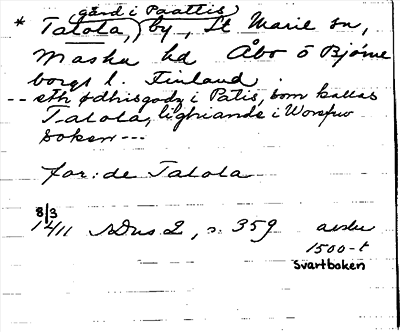 gård i Paattis
* Talola, by, St Marie sn,
Masku hd Åbo o Björne
borgs l. Finland.
-- eth ødhisgodz i Patis, som kallas
Talola, lighiande i Worfrw
soken ---
for: de Talola
8/3
1411 SDns 2, s. 359 avskr
1500-t
Svartboken